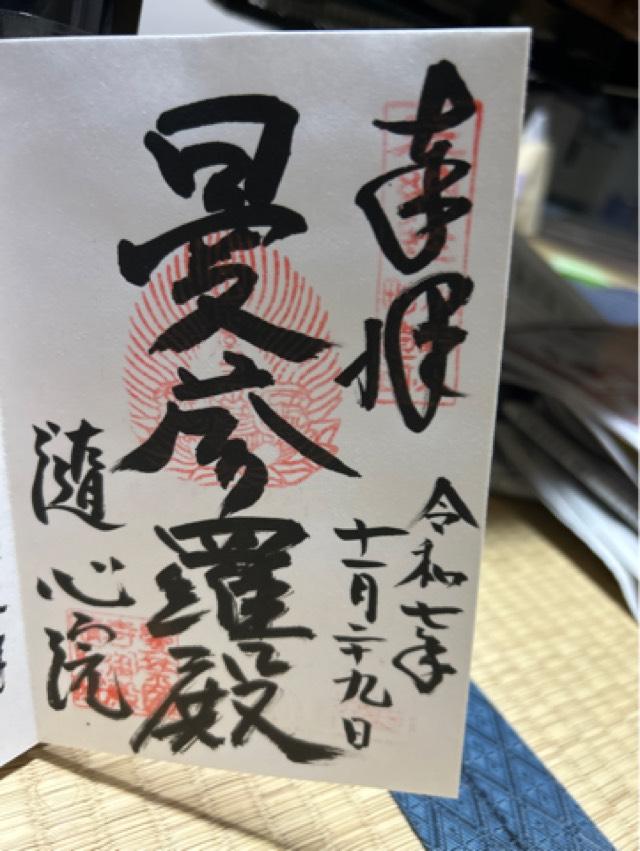 奉拝
令和七年
十一月二十九日
曼荼羅殿
隨心院